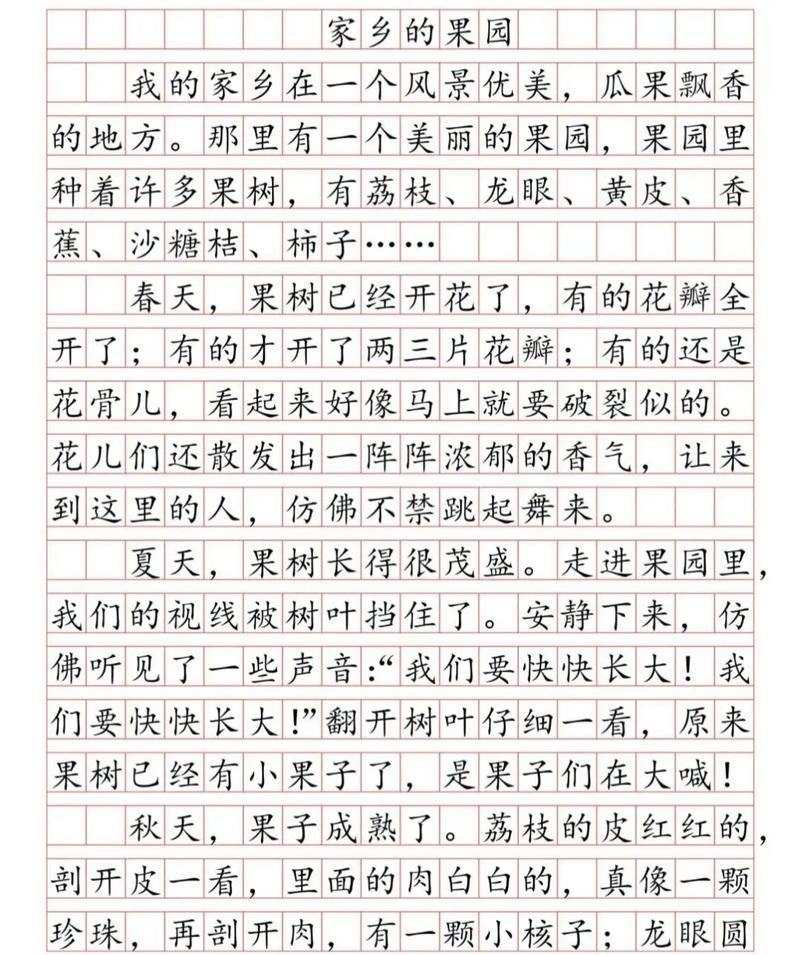 家乡的果园
我的家乡在一个风景优美，瓜果飘香
的地方。那里有一个美丽的果园，果园里
种着许多果树，有荔枝、龙眼、黄皮、香
蕉、沙糖桔、柿子……
春天，果树已经开花了，有的花瓣全
开了；有的才开了两三片花瓣；有的还是
花骨儿，看起来好像马上就要破裂似的。
花儿们还散发出一阵阵浓郁的香气，让来
到这里的人，仿佛不禁跳起舞来。
夏天，果树长得很茂盛。走进果园里，
我们的视线被树叶挡住了。安静下来，仿
佛听见了一些声音:“我们要快快长大！我
们要快快长大!”翻开树叶仔细一看，原来
果树已经有小果子了，是果子们在大喊！
秋天，果子成熟了。荔枝的皮红红的，
剖开皮一看，里面的肉白白的，真像一颗
珍珠，再剖开肉，有一颗小核子；龙眼圆